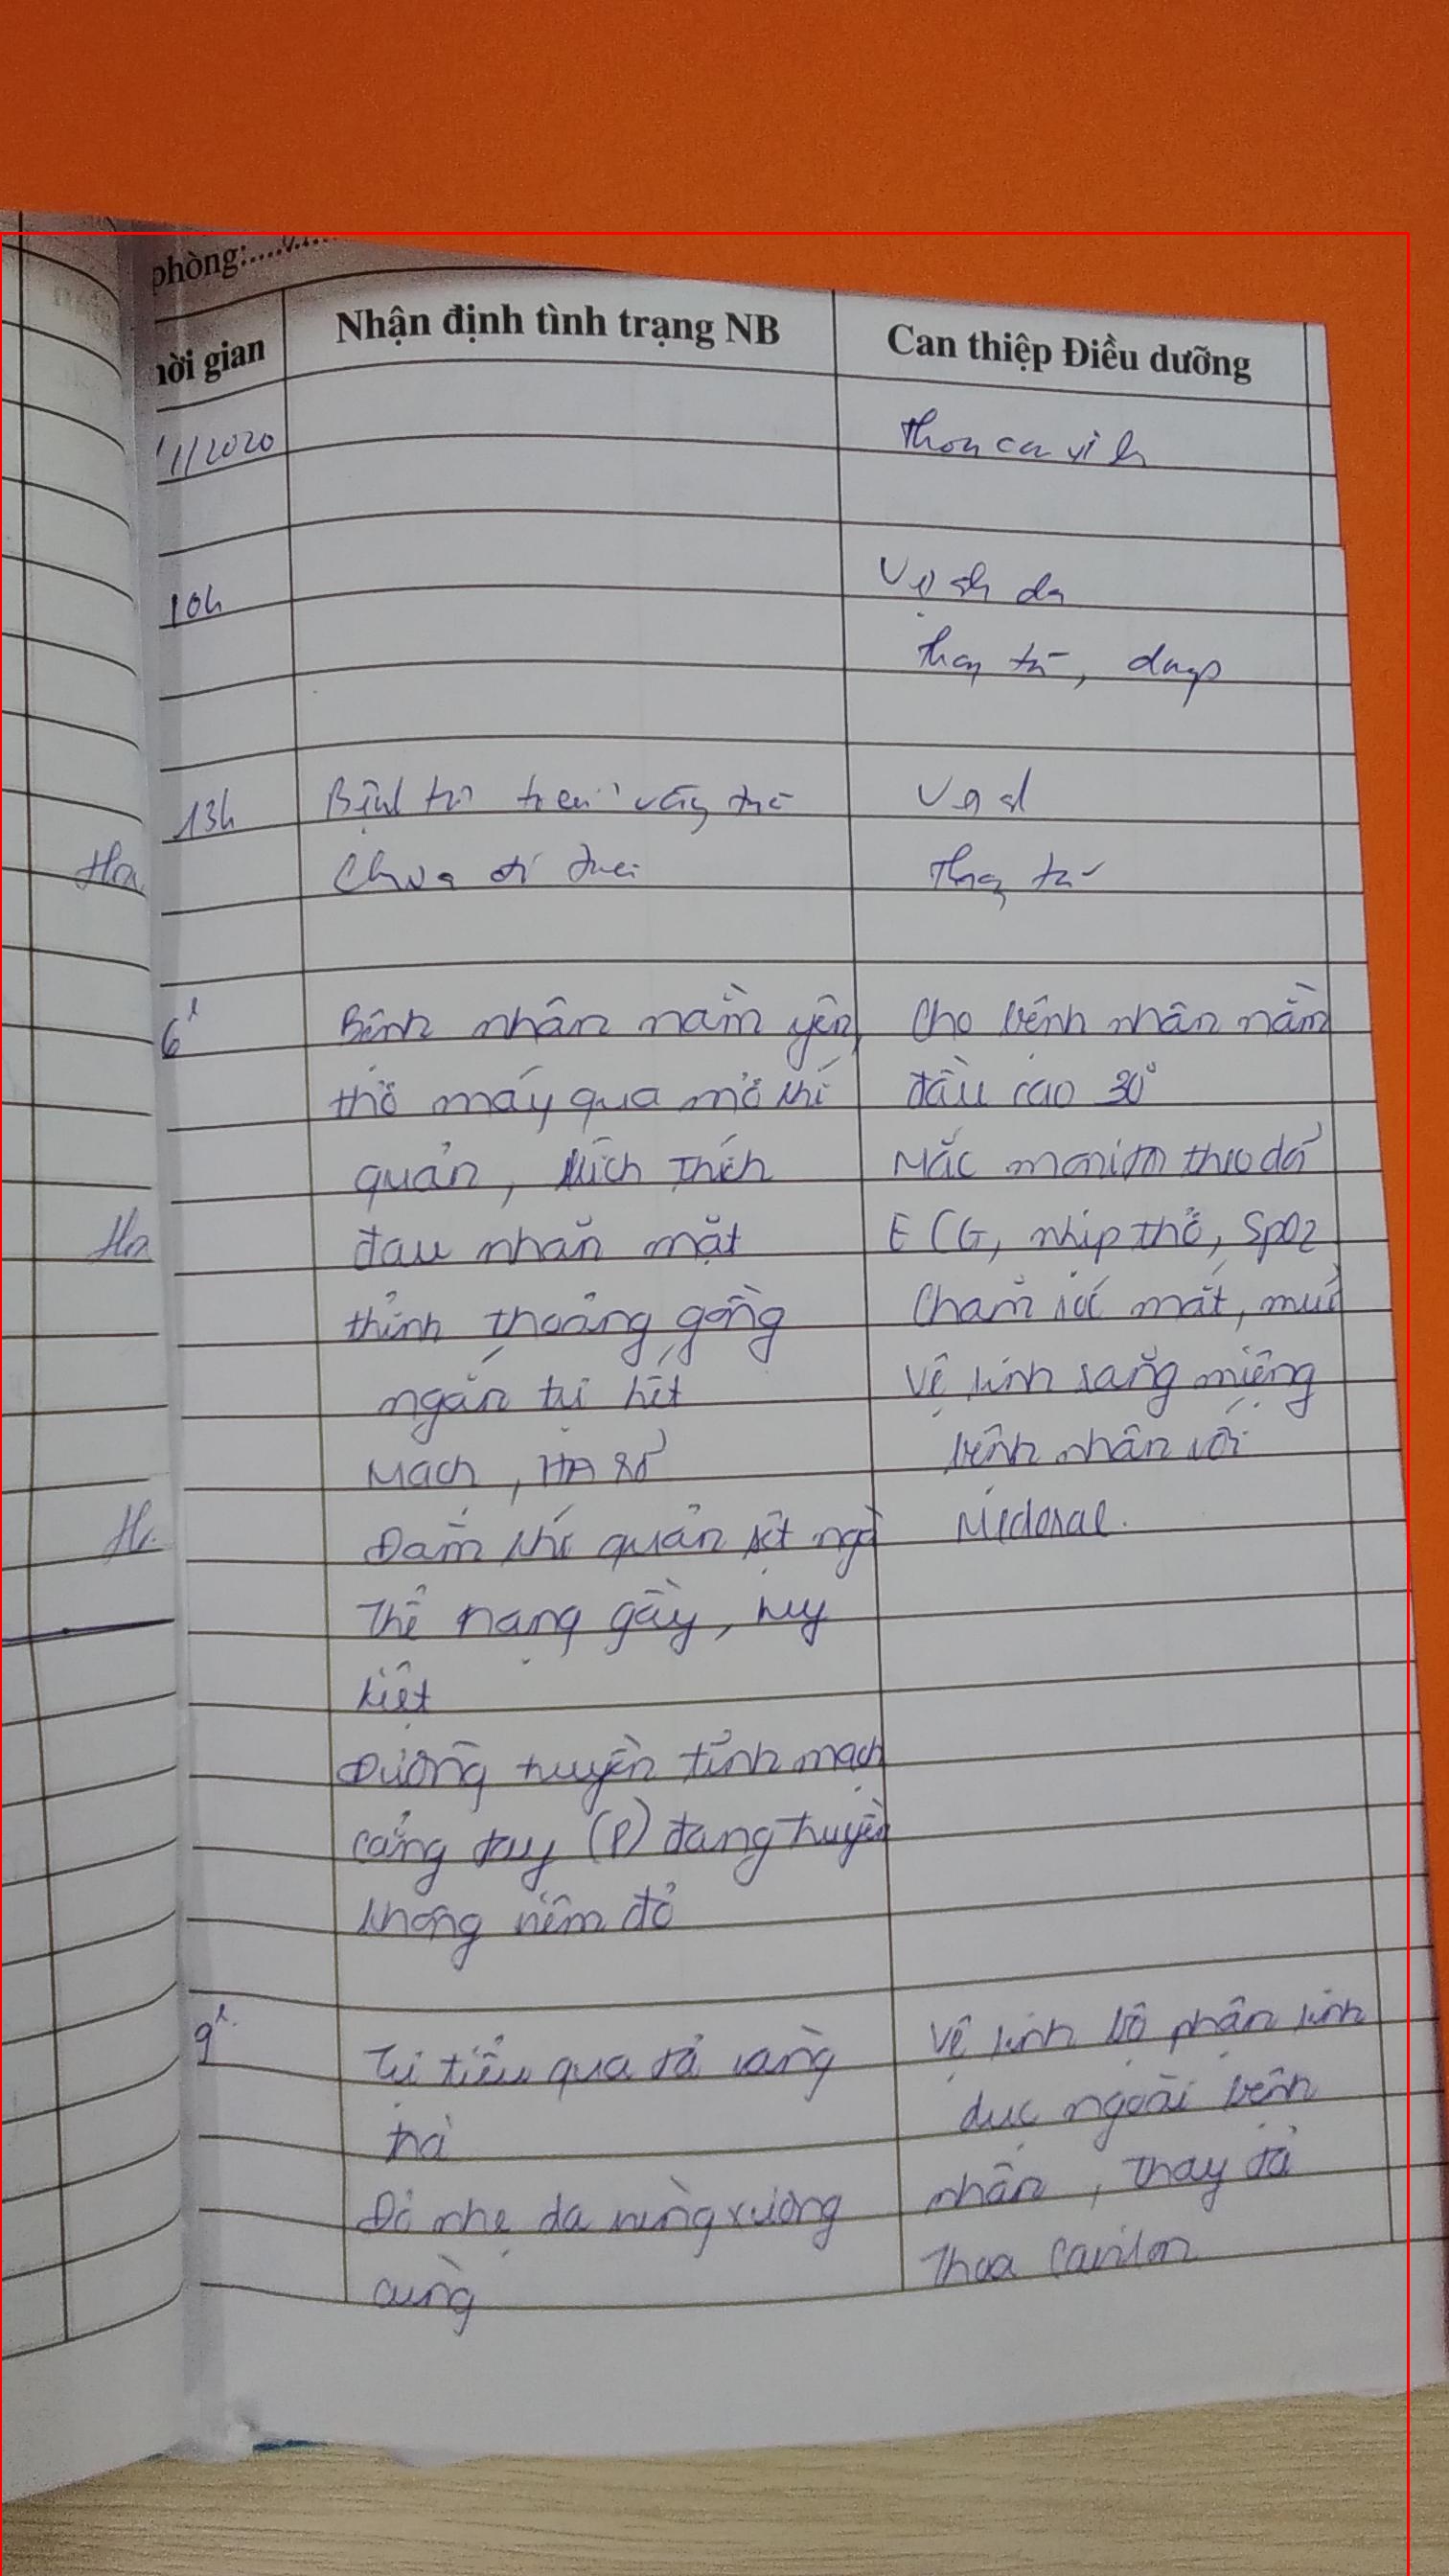 phòng:
hời gian
Nhận định tình trạng NB
Can thiệp Điều dưỡng
1/2020
10h
da
thay tã,
13h
Chưa đi
thay tã
6h
Bệnh nhân nằm yên,
thở máy qua mở khí
quản, kích thích
đau nhăn mặt
thỉnh thoảng gồng
ngắn tự hết
Mạch, HA số
Đàm khí quản sệt ngà
Thể trạng gầy, suy
kiệt
Đường truyền tĩnh mạch
cẳng tay (P) đang truyền
không viêm đỏ
Cho bệnh nhân nằm
đầu cao 30°
Mắc monitor theo dõi
ECG, nhịp thở, SpO2
Chăm sóc mắt, mũi
Vệ sinh răng miệng
bệnh nhân với
Medoral.
9h
Tự tiểu qua tã vàng
trà
Đỏ nhẹ da vùng xương
cùng
Vệ sinh bộ phận sinh
dục ngoài bệnh
nhân, thay tã
Thoa Cavilon